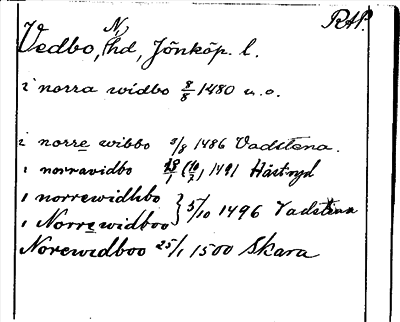 RAP.
Vedbo, N, hd, Jönköp. l.
i norra widbo 8/8 1480 u.o.
i norre wibbo 5/8 1486 Vadstena.
i norravidbo 1491 Hästryd
i norrewidhbo
i Norrewidboo } 5/10 1496 Vadstena
Norewidboo 25/1 1500 Skara